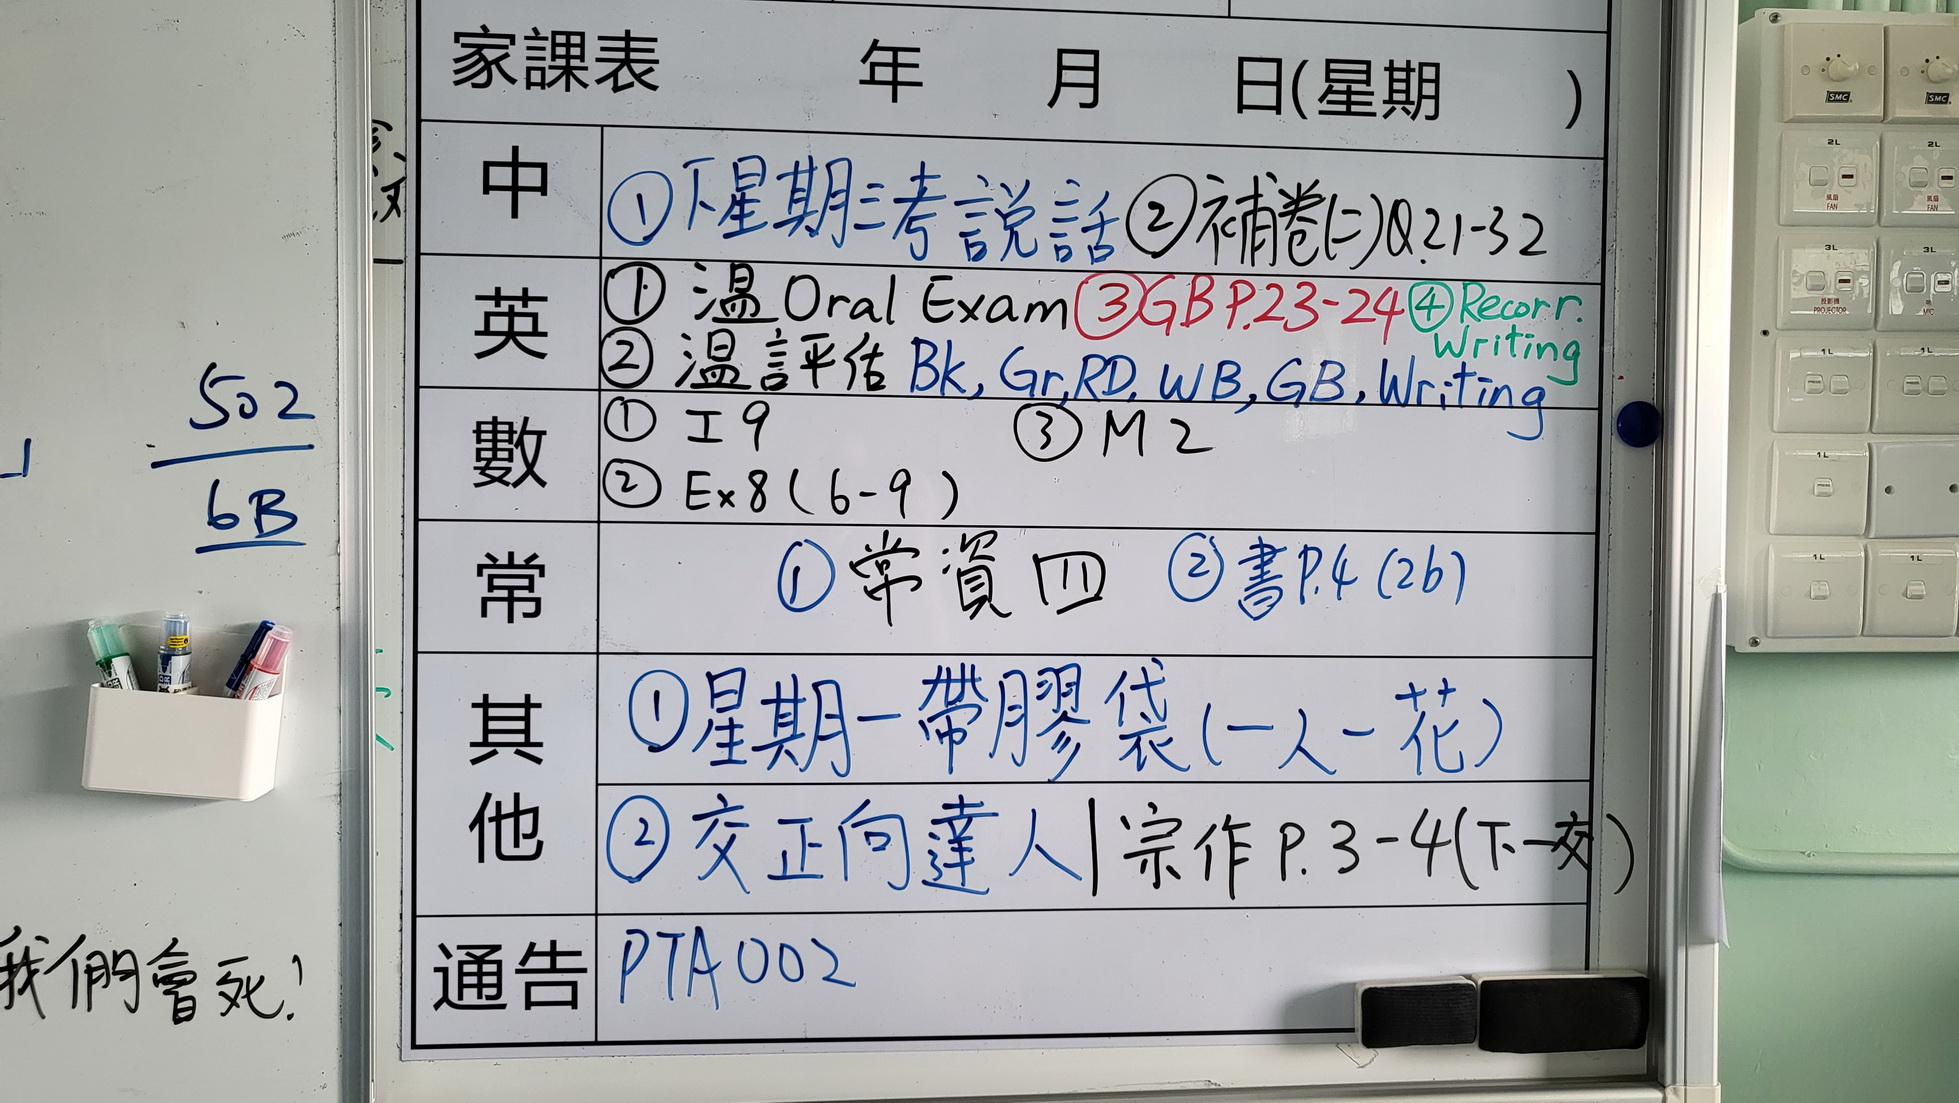 家課表 年 月 日(星期 )
中 ①下星期三考說話②補卷(二)Q.21-32
英 ① 溫 Oral Exam ③GB P.23-24 ④Recorr. Writing
② 溫評估 Bk, Gr, RD, WB, GB, Writing
數 ① I9 ③ M2
② Ex8 (6-9)
常 ①常資四 ②書P.4 (2b)
其他 ①星期一帶膠袋(一人一花)
②交正向達人|宗作 P.3-4(下一交)
通告 PTA002
502
6B
我們會死!
SMC
SMC
2L
2L
風扇
FAN
風扇
FAN
3L
3L
投影機
PROJECTOR
MIC
1L
1L
1L
1L
1L